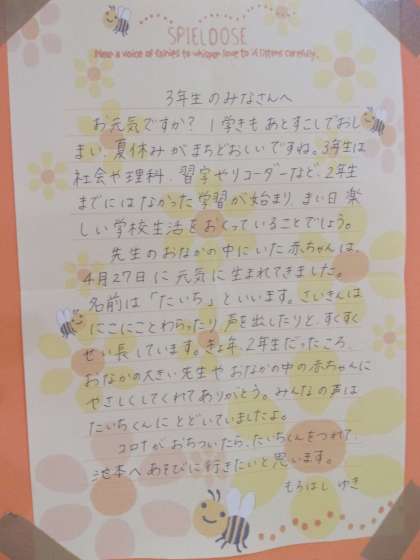 SPIELDOSE
Hear a voice of fairies to whisper love to it listens carefully.
3年生のみなさんへ
お元気ですか？1学きもあとすこしでおし
まい、夏休みがまちどおしいですね。3年生は
社会や理科、習字やリコーダーなど、2年生
まではなかった学習が始まり、まい日楽
しい学校生活をおくっていることでしょう。
先生のおなかの中にいた赤ちゃんは、
4月27日に元気に生まれてきました。
名前は「たいち」といいます。さいきんは
にこにことわらったり声を出したりと、すくすく
せい長しています。きょ年、2年生だったころ、
おなかの大きい先生やおなかの中の赤ちゃんに
やさしくしてくれてありがとう。みんなの声は
たいちくんにとどいていましたよ。
コロナがおちついたら、たいちくんをつれて、
池本へあそびに行きたいと思います。
もろはし ゆき